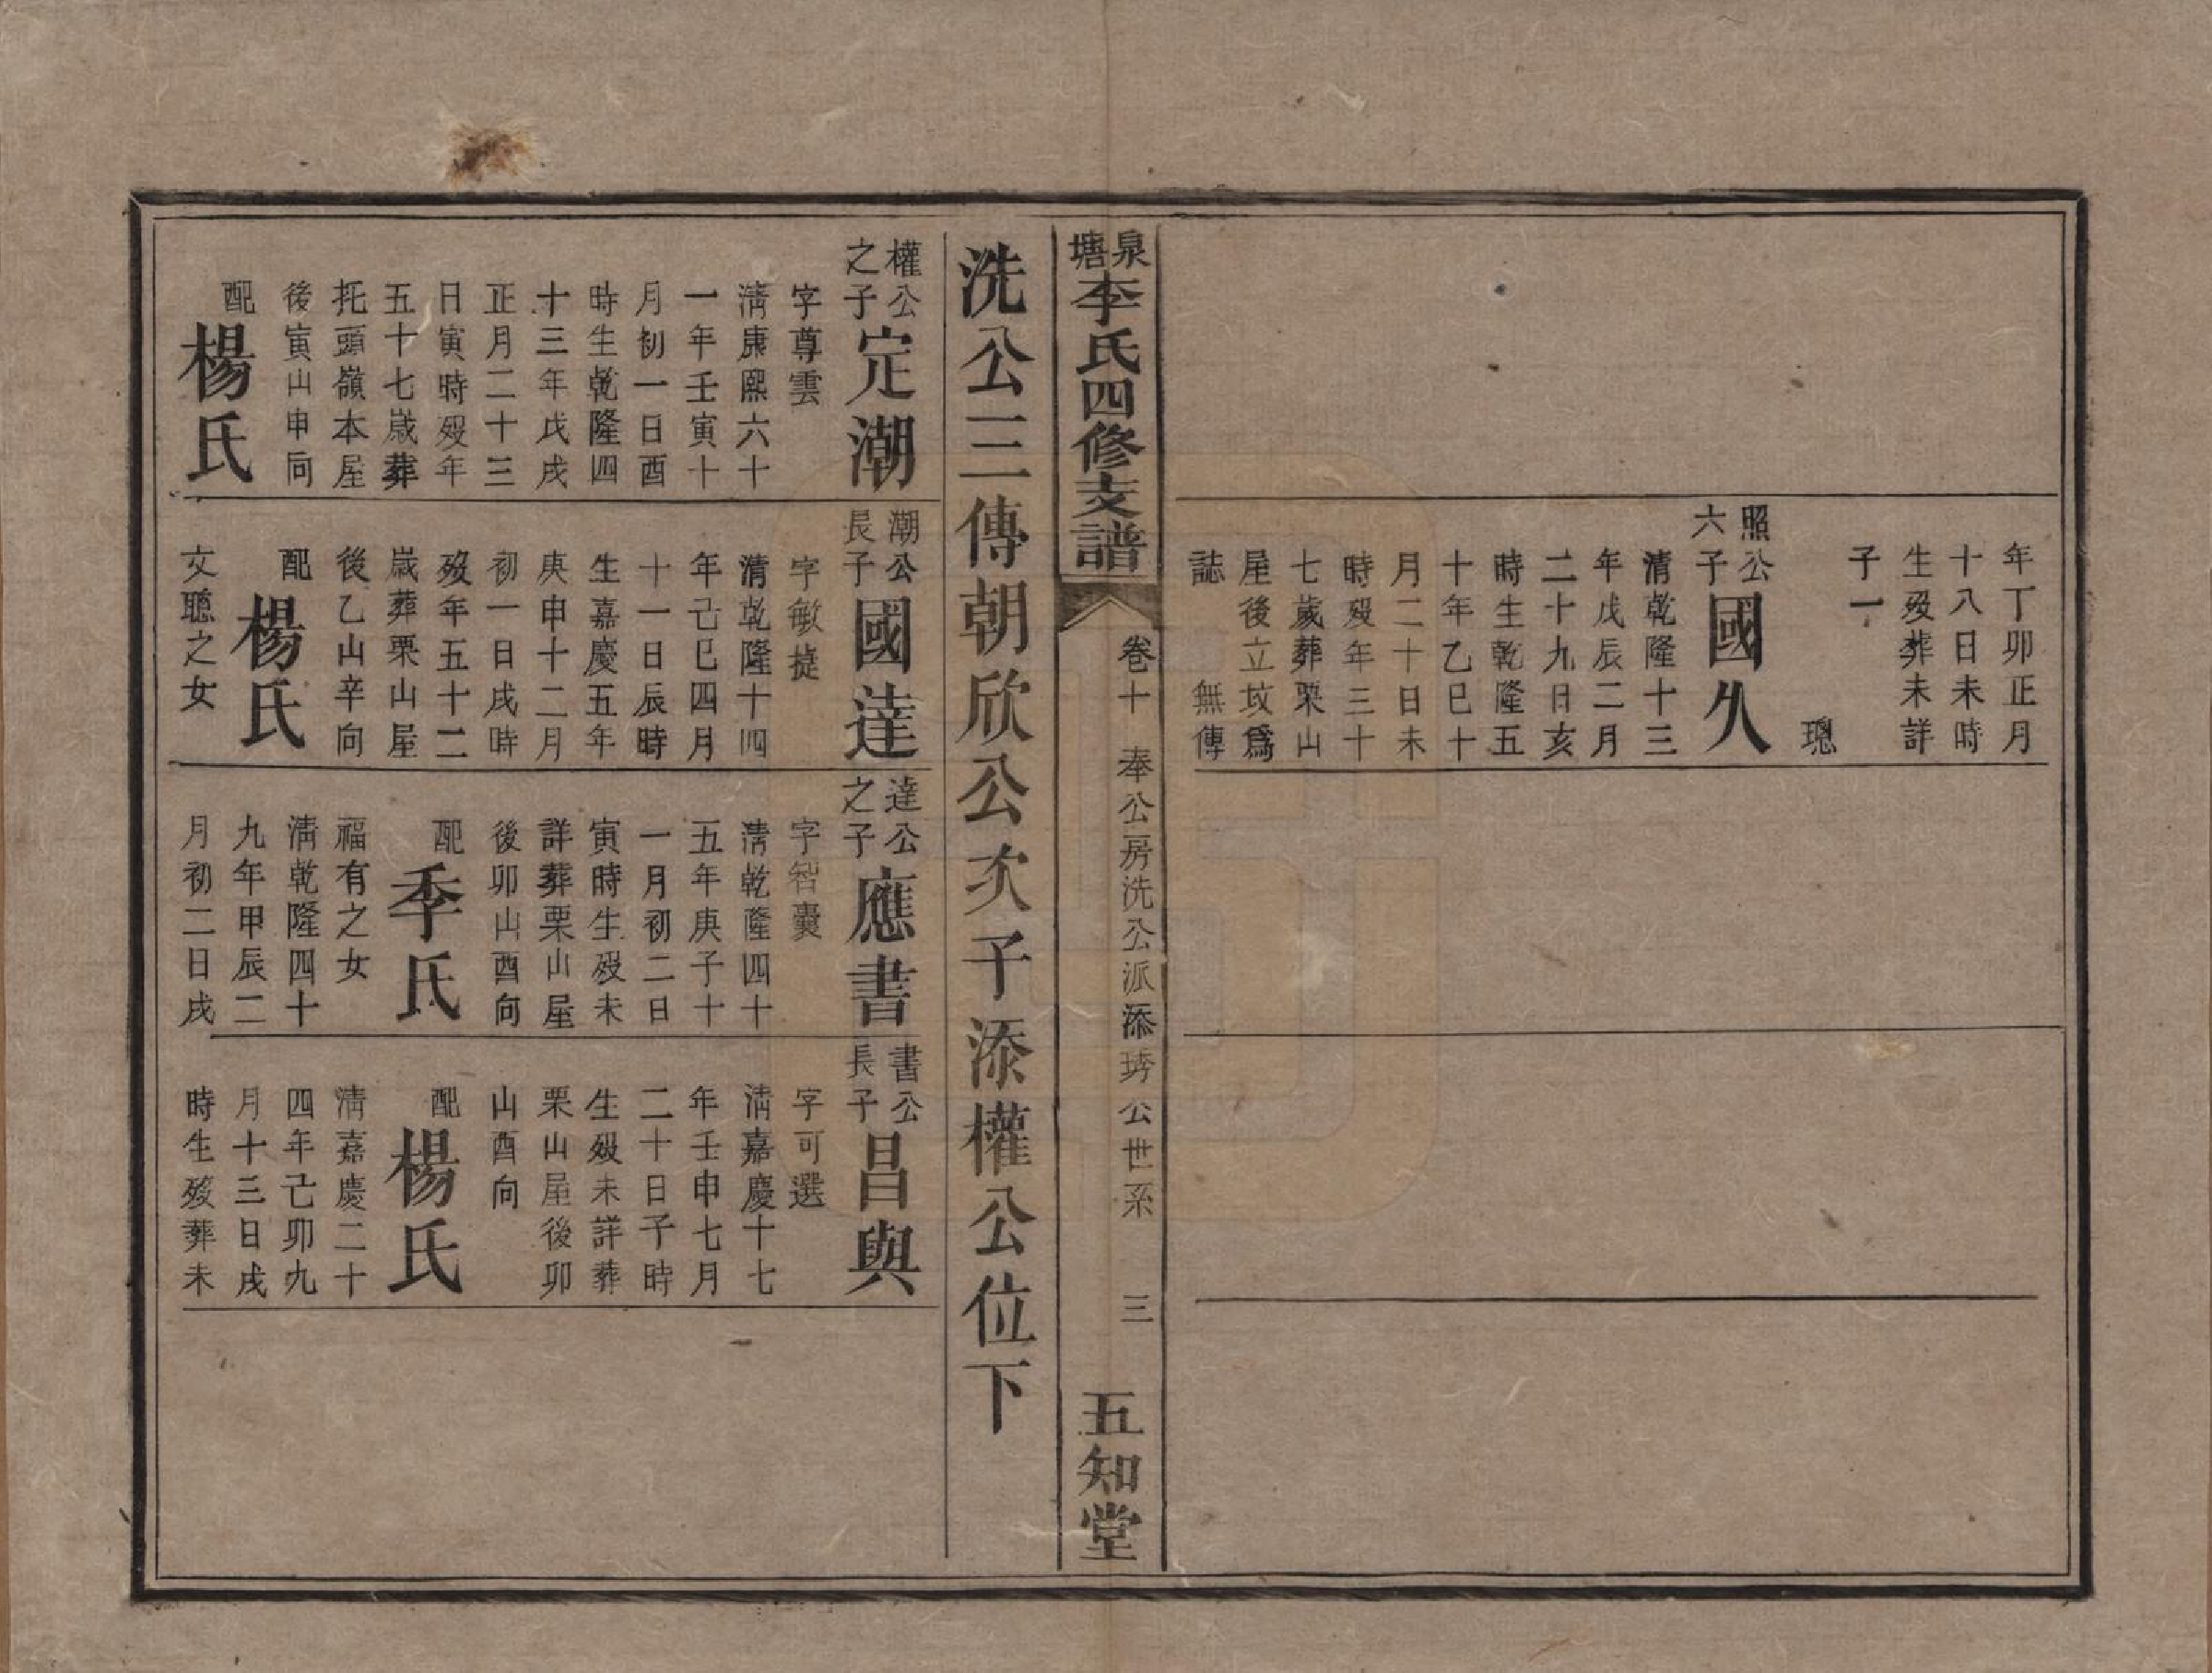 年丁卯正月
十八日未時
生歿葬未詳
子一
璁
照公六子
國久
清乾隆十三
年戊辰二月
二十九日亥
時生乾隆五
十年乙巳十
月二十日未
時歿年三十
七歲葬栗山
屋後立坟爲
誌　無傳
泉塘李氏四修支譜
卷十　奉公房洗公派添琇公世系　三
五知堂
洗公三傳朝欣公次子添權公位下
權公之子
定潮
字尊雲
淸康熙六十
一年壬寅十
月初一日酉
時生乾隆四
十三年戊戌
正月二十三
日寅時歿年
五十七歲葬
托頭嶺本屋
後寅山申向
配
楊氏
潮公長子
國達
字敏㨗
清乾隆十四
年己巳四月
十一日辰時
生嘉慶五年
庚申十二月
初一日戌時
歿年五十二
歲葬栗山屋
後乙山辛向
配
楊氏
文聰之女
達公之子
應書
字智囊
淸乾隆四十
五年庚子十
一月初二日
寅時生歿未
詳葬栗山屋
後卯山酉向
配
季氏
福有之女
淸乾隆四十
九年甲辰二
月初二日戌
書公長子
昌與
字可選
淸嘉慶十七
年壬申七月
二十日子時
生歿未詳葬
栗山屋後卯
山酉向
配
楊氏
淸嘉慶二十
四年己卯九
月十三日戌
時生歿葬未